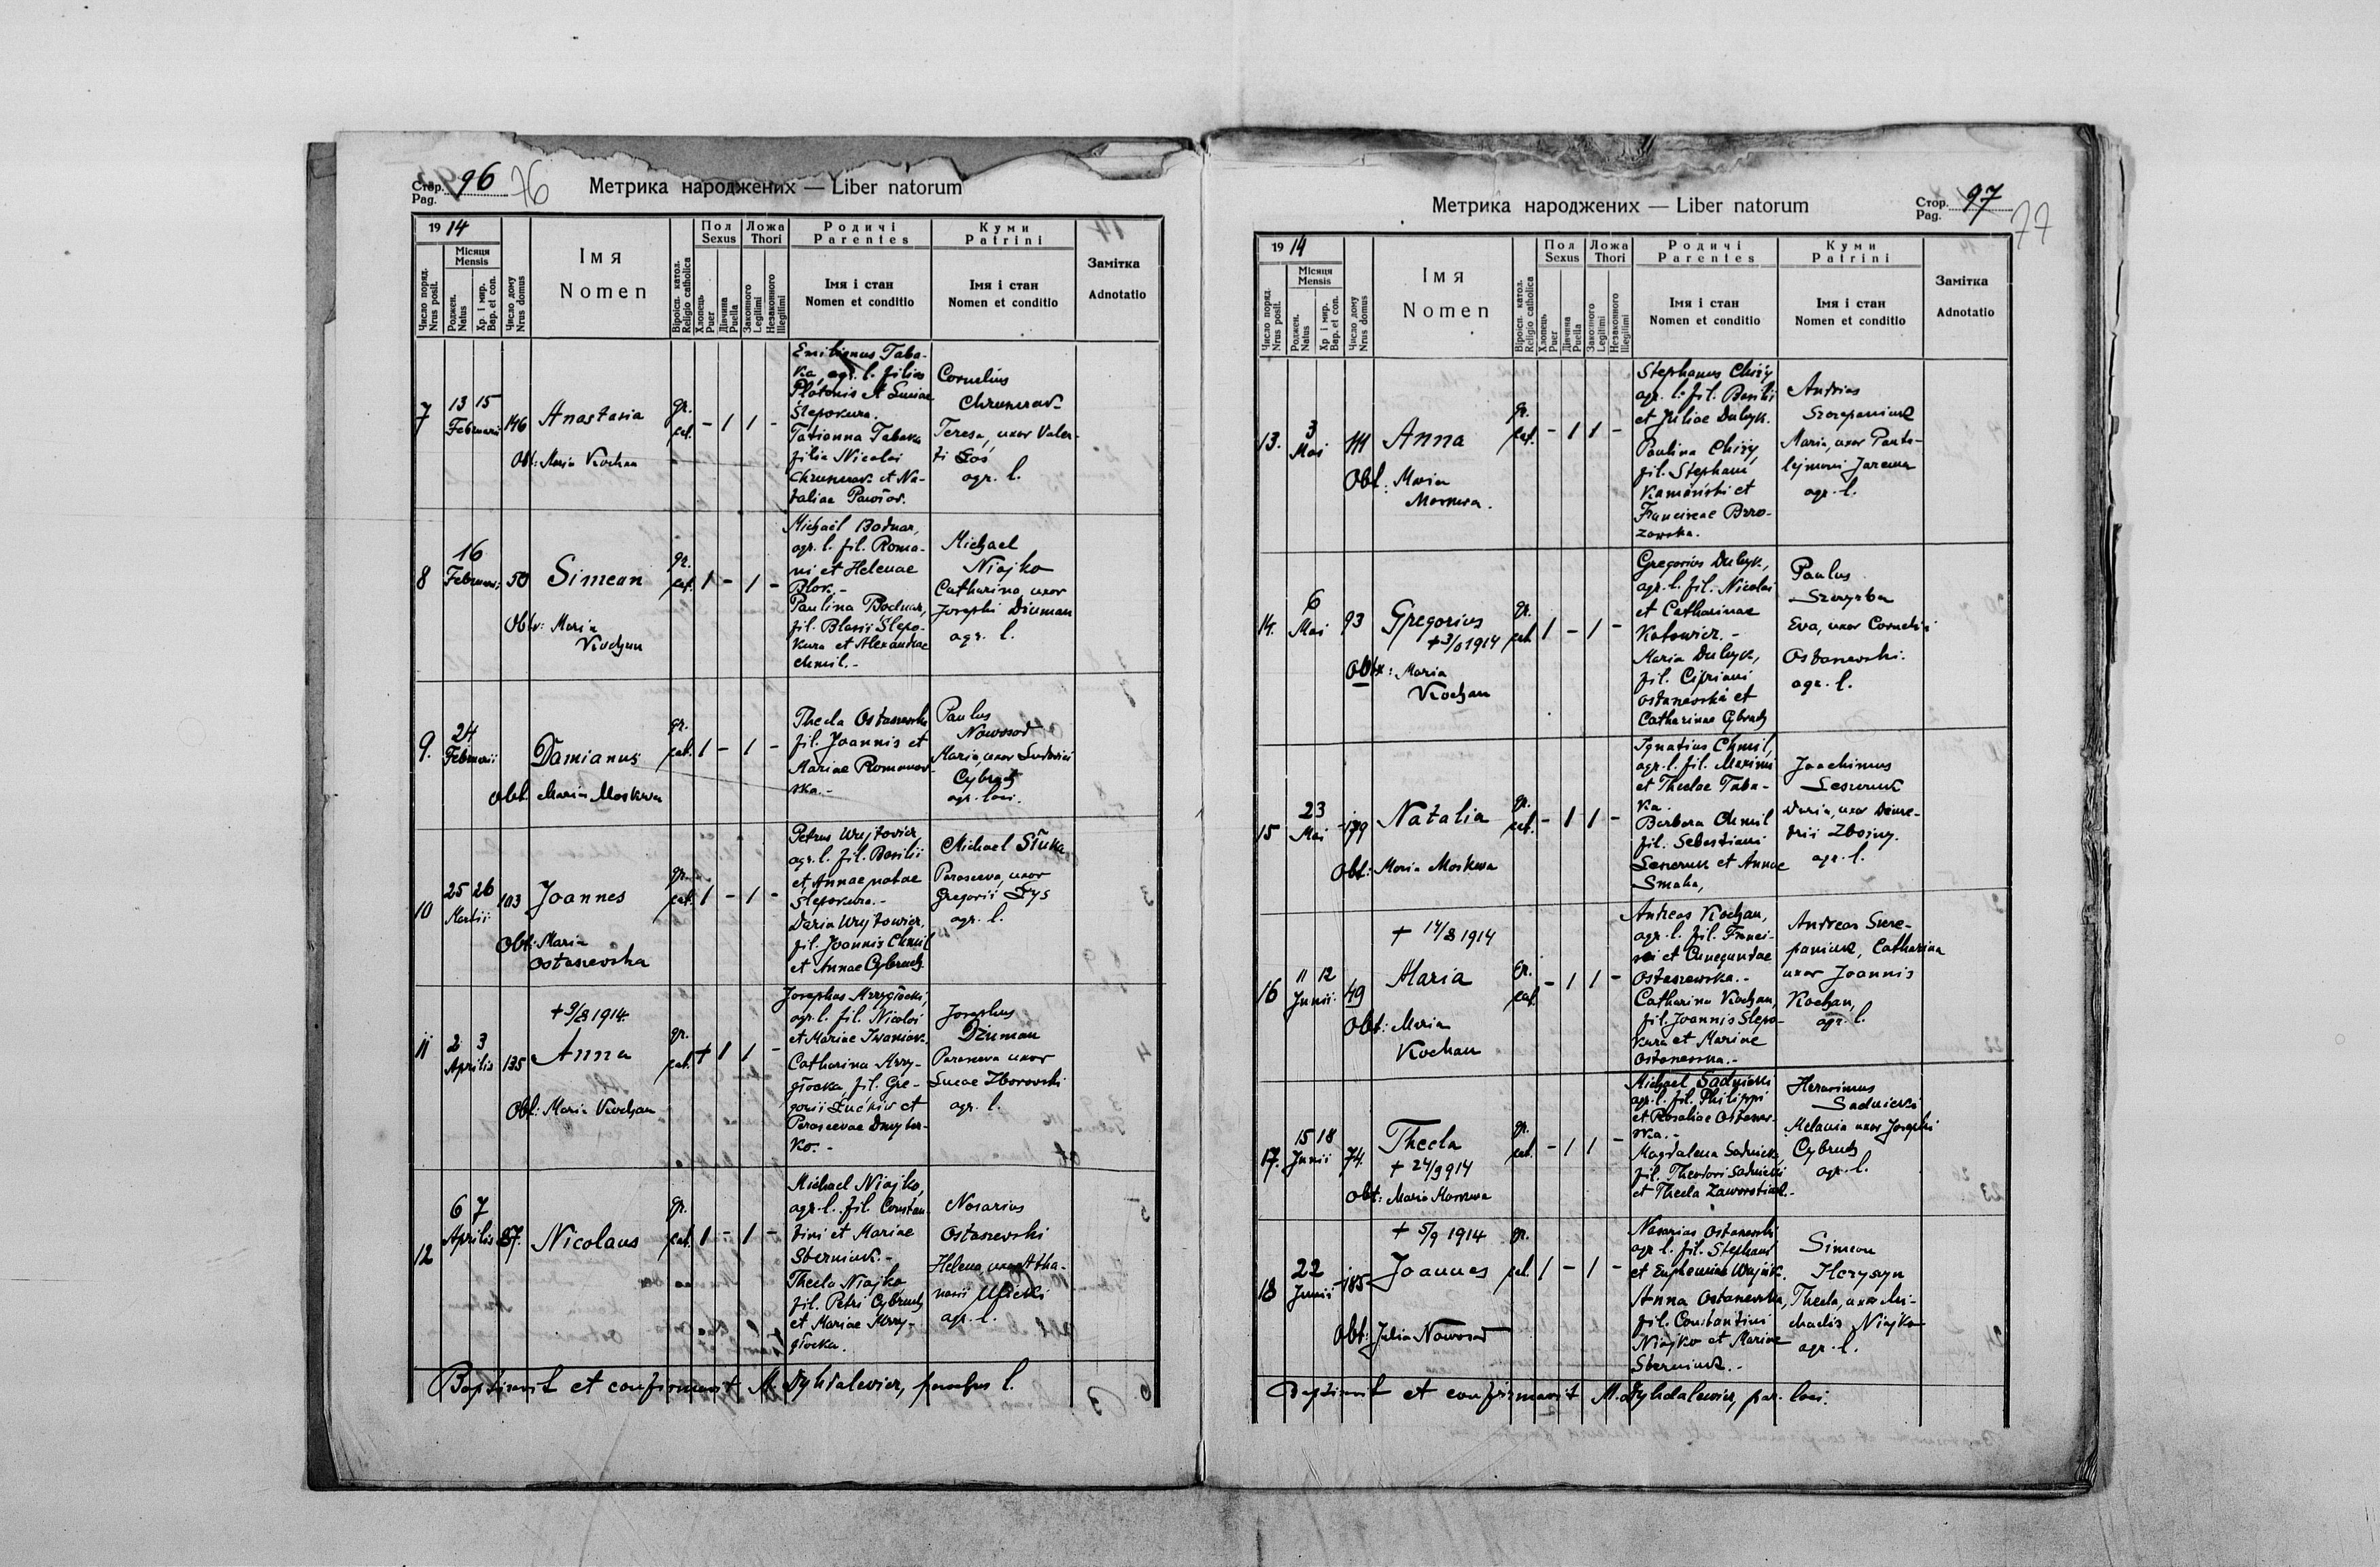 Стор. Pag. 96 76
Метрика народжених — Liber natorum
19 14
Число поряд. Nrus posit.
Місяця Mensis
Роджен. Natus
Хр. і мир. Bap. et con.
Число дому Nrus domus
Імя
Nomen
Віросп. катол. Religio catholica
Пол Sexus
Хлопець Puer
Дівчина Puella
Ложа Thori
Законного Legitimi
Незаконного Illegitimi
Родичі
Parentes
Імя і стан
Nomen et conditio
Куми
Patrini
Імя і стан
Nomen et conditio
Замітка
Adnotatio
7
13 15
Februarii
146
Anastasia
Obt: Maria Kochan
gr.
cat.
- 1 1 -
Emilianus Taba-
ka, agr. l. filius
Platonis et Luciae
Ślepokura.
Tatianna Tabaka
filia Nicolai
et Na-
taliae
Cornelius
Teresa, uxor Valen-
ti Łoś
agr. l.
8
16
Februarii
50
Simeon
Obtx: Maria
Kochan
gr.
cat.
1 - 1 -
Michael Bodnar,
agr. l. fil. Roma-
ni et Helenae
Paulina Bodnar,
fil. Blasii Ślepo-
kura et Alexandrae
Chmil.-
Michael
Niajko
Catharina, uxor
Josephi Dziuman
agr. l.
9.
24
Februarii
Damianus
Obt. Maria Moskwa
gr.
cat.
1 - 1 -
Thecla Ostaszewska
fil. Joannis et
Mariae Romanow-
ska.-
Paulus
Nowosad
Maria, uxor Ludovici
Cybruch
agr. loci.
10
25 26
Martii
103
Joannes
Obt: Maria
Ostaszewska
gr.
cat.
1 - 1 -
Petrus Wujtowicz,
agr. l. fil. Basilii
et Annae natae
Ślepokura.-
Daria Wujtowicz,
fil. Joannis Chmil
et Annae Cybruch.
Michael
Parasceva, uxor
Gregorii Łys
agr. l.
11
2 3
Aprilis
135
+ 9/8 1914.
Anna
Obt: Maria Kochan
gr.
cat.
+ 1 1 -
Josephus Mrzygłocki,
agr. l. fil. Nicolai
et Mariae Iwaniak.
Catharina Mrzy-
głocka, fil. Gre-
gorii et
Parascevae Dmyter-
ko.-
Josephus
Dziuman
Parasceva uxor
Lucae Zborowski
agr. l.
12
6 7
Aprilis
87.
Nicolaus
gr.
cat.
1 - 1 -
Michael Niajko,
agr. l. fil. Constan-
tini et Mariae
Sterniuk.-
Thecla Niajko,
fil. Petri Cybruch
et Mariae Mrzy-
głocka.
Nazarius
Ostaszewski
Helena, uxor Atha-
nasii
agr. l.
Baptisavit et confirmavit M. Dyhdalewicz, parochus l.
Метрика народжених — Liber natorum
Стор. Pag. 97
77
19 14
Число поряд. Nrus posit.
Місяця Mensis
Роджен. Natus
Хр. і мир. Bap. et con.
Число дому Nrus domus
Імя
Nomen
Віросп. катол. Religio catholica
Пол Sexus
Хлопець Puer
Дівчина Puella
Ложа Thori
Законного Legitimi
Незаконного Illegitimi
Родичі
Parentes
Імя і стан
Nomen et conditio
Куми
Patrini
Імя і стан
Nomen et conditio
Замітка
Adnotatio
13.
3
Mai
111
Anna
Obt: Maria
Moskwa.
gr.
cat.
- 1 1 -
Stephanus Chizy
agr. l. fil. Basilii
et Juliae Dulcyk.
Paulina Chizy,
fil. Stephani
Kamiński et
Franciscae Brzo-
zowska.
Andreas
Szczepaniuk
Maria, uxor Pante-
lejmoni Jarema
agr. l.
14.
6
Mai
93
Gregorius
+ 3/8 1914
Obtx: Maria
Kochan
gr.
cat.
1 - 1 -
Gregorius Dulcyk,
agr. l. fil. Nicolai
et Catharinae
Katowicz.-
Maria Dulcyk,
fil. Cipriani
Ostaszewski et
Catharinae Cybruch
Paulus
Eva, uxor Cornelii
Ostaszewski.
agr. l.
15
23
Mai
179
Natalia
Obt: Maria Moskwa
gr.
cat.
- 1 1 -
Ignatius Chmil,
agr. l. fil. Maximi
et Theclae Taba-
ka.
Barbara Chmil
fil. Sebastiani
et Annae
Smaha,
Joachimus
Daria, uxor Deme-
trii Zbojny.
agr. l.
16
11 12
Junii
49
+ 14/8 1914
Maria
Obt: Maria
Kochan
gr.
cat.
- 1 1 -
Andreas Kochan,
agr. l. fil. Franci-
sci et Cunegundae
Ostaszewska.-
Catharina Kochan,
fil. Joannis Ślepo-
kura et Mariae
Ostaszewska.-
Andreas Szcze-
paniuk, Catharina
uxor Joannis
Kochan,
agr. l.
17.
15 18
Junii
74.
Thecla
+ 24/9 914
Obt: Maria Moskwa
gr.
cat.
- 1 1 -
Michael Sadnicki
agr. l. fil. Philippi
et Rosaliae Ostaszew-
ska.-
Magdalena Sadnicka,
fil. Theodori Sadnicki
et Thecla Zaworotiuk.-
Herasimus
Sadnicki
Melania uxor Josephi
Cybruch
agr. l.
18
22
Junii
185
+ 5/9 1914
Joannes
Obt: Julia Nowosad
gr.
cat.
1 - 1 -
Nazarius Ostaszewski
agr. l. fil. Stephani
et Euphemiae Wujcik.
Anna Ostaszewska,
fil. Constantini
Niajko et Mariae
Sterniuk.-
Simeon
Harysyn
Thecla, uxor Mi-
chaelis Niajko
agr. l.
Baptisavit et confirmavit M. Dyhdalewicz, par. loci.